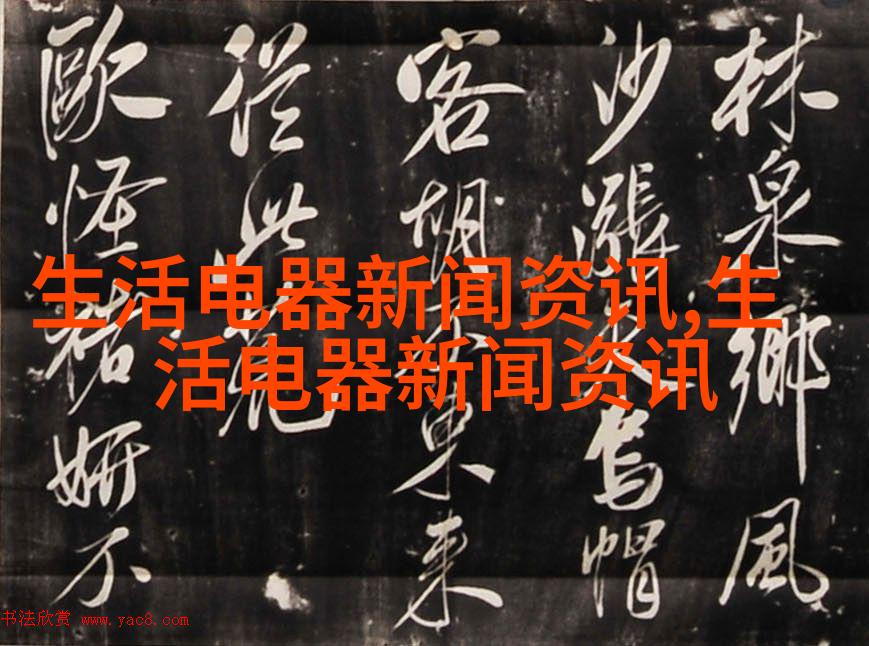 生活电器新闻资讯,生
活电器新闻资讯
林泉鄉風
沙漲烏帽
客胡東來
從此
歐怪褚妍不
书法欣赏 www.yac8.com